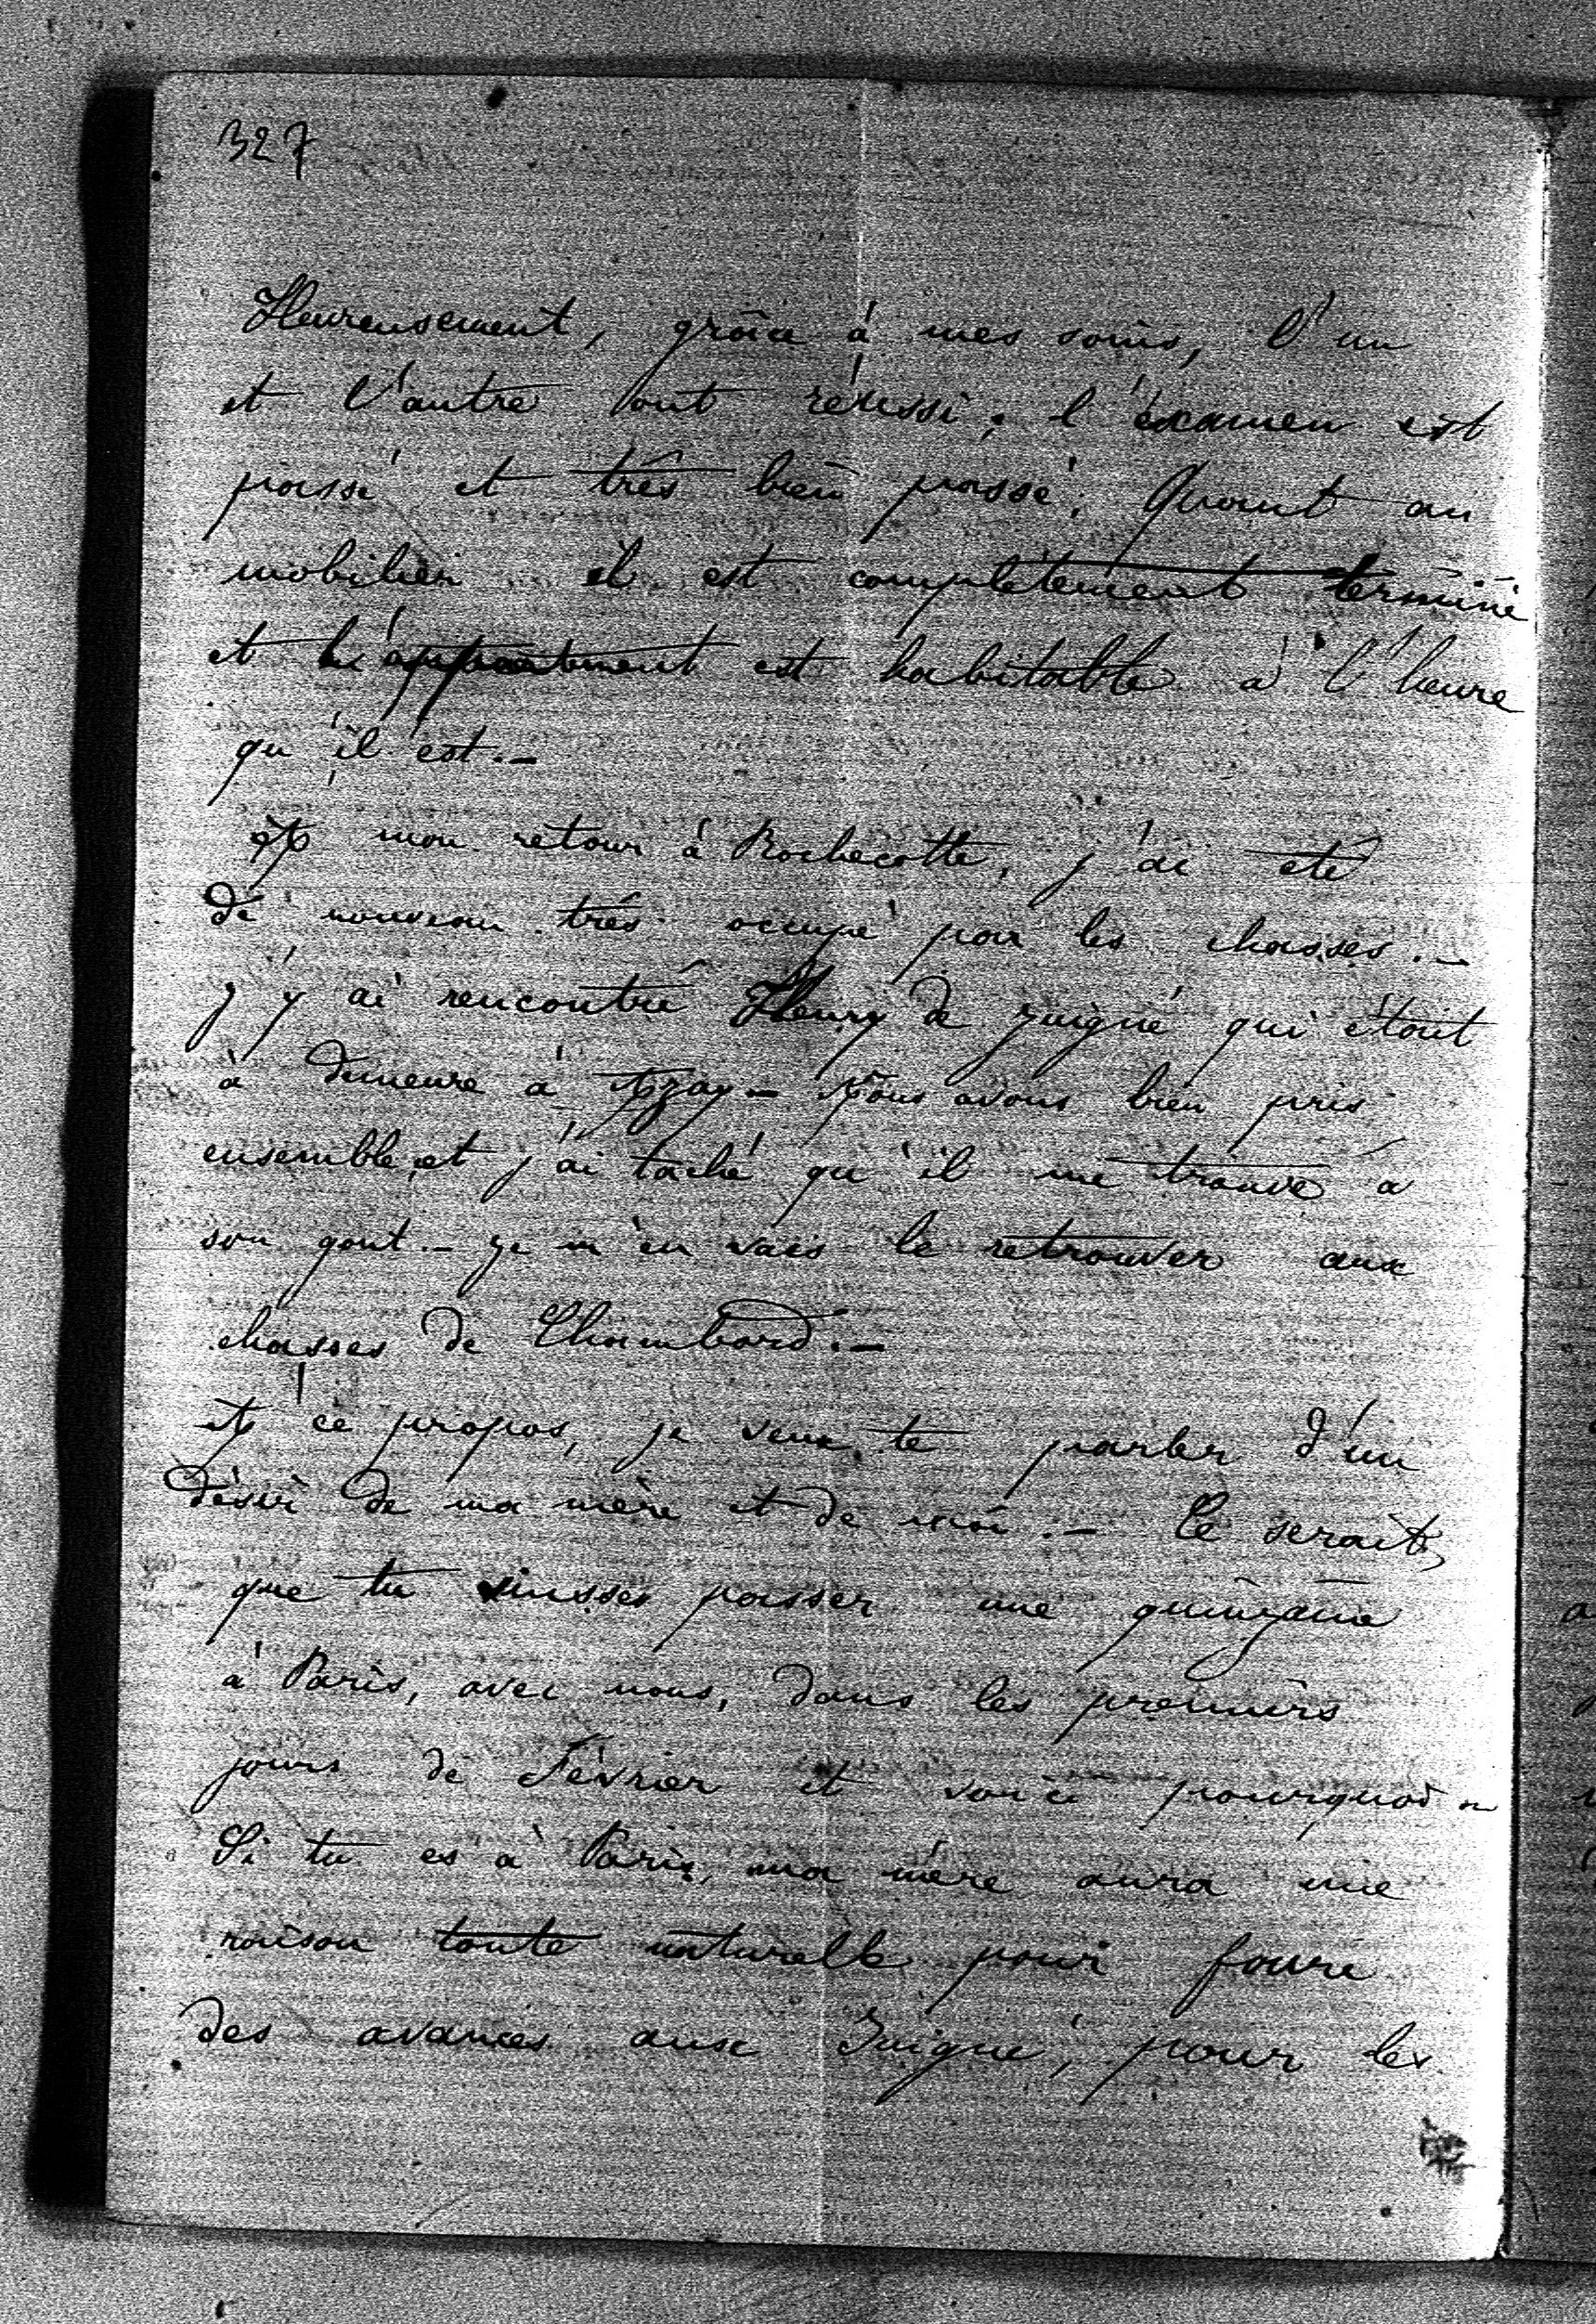 327
Heureusement, grâce à mes soins, l'un
et l'autre ont réussi, l'examen est
passé et très bien passé. Quant au
mobilier il est complètement terminé
et l'appartement est habitable à l'heure
qu'il est. —
A mon retour à Rochecotte, j'ai été
de nouveau très occupé par les chasses. —
j'y ai rencontré Henry de Juigné qui était
à demeure à Azay — Nous avons bien pris
ensemble, et j'ai taché qu'il me trouve à
son gout. — Je m'en vais le retrouver aux
chasses de Chambord. —
A ce propos, je veux te parler d'un
désir de ma mère et de moi. — Ce serait,
que tu vinsses passer une quinzaine
à Paris, avec nous, dans les premiers
jours de Février et voici pourquoi —
Si tu es à Paris, ma mère aura une
raison toute naturelle pour faire
des avances aux Juigné, pour les